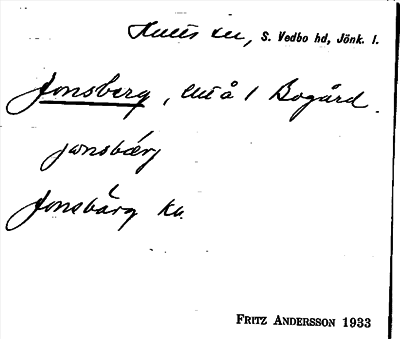 Hults sn, S. Vedbo hd, Jönk. l.
Jonsberg, litå / Bogård.
jonsbärj
Jonsbärg kv.
FRITZ ANDERSSON 1933